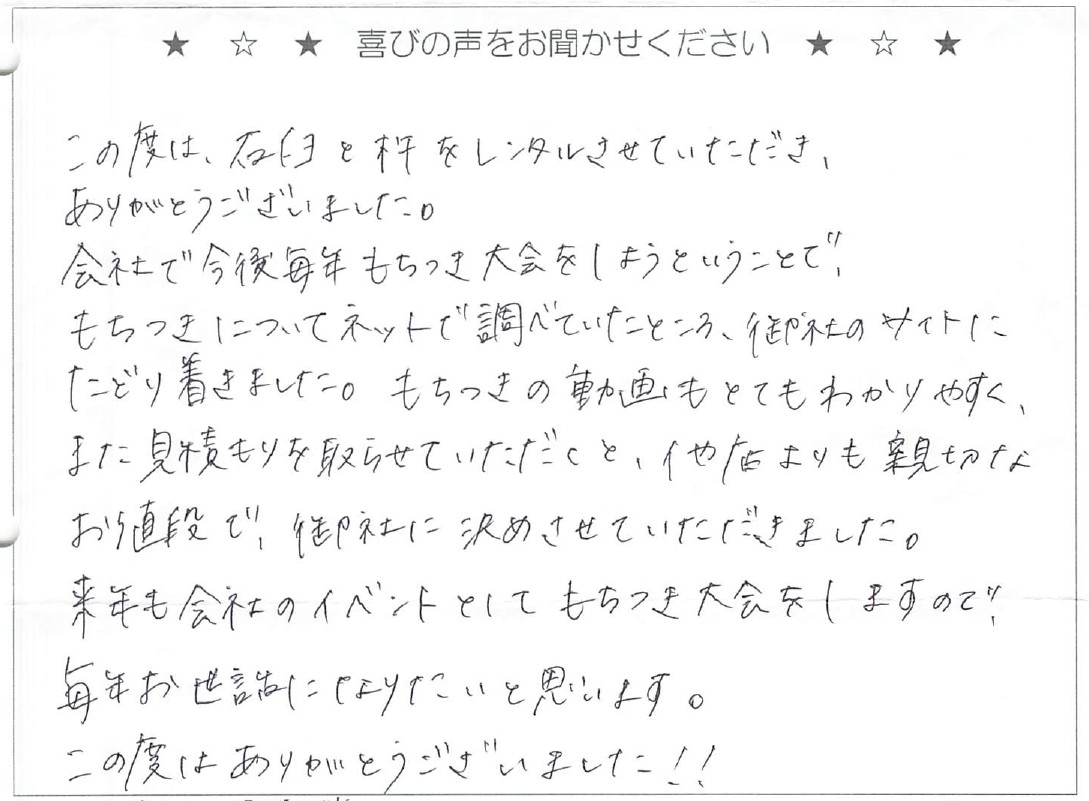 ★ ☆ ★ 喜びの声をお聞かせください ★ ☆ ★
この度は、石臼と杵をレンタルさせていただき、
ありがとうございました。
会社で今後毎年もちつき大会をしようということで、
もちつきについてネットで調べていたところ、御社のサイトに
たどり着きました。もちつきの動画もとてもわかりやすく、
また見積もりを取らせていただくと、他店よりも親切な
お値段で、御社に決めさせていただきました。
来年も会社のイベントとしてもちつき大会をしますので、
毎年お世話になりたいと思います。
この度はありがとうございました!!